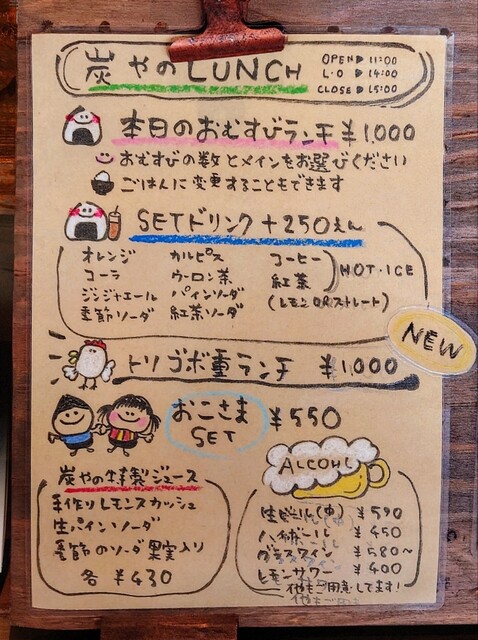 炭やのLUNCH
OPEN▷11:00
L.O▷14:00
CLOSE▷15:00
本日のおむすびランチ ¥1.000
おむすびの数とメインをお選びください
ごはんに変更することもできます
SETドリンク +250えん
オレンジ カルピス コーヒー
コーラ ウーロン茶 紅茶 HOT・ICE
ジンジャエール パインソーダ (レモンORストレート)
季節ソーダ 紅茶ソーダ
NEW
トリゴボ重ランチ ¥1.000
おこさま SET ¥550
炭やの特製ジュース
手作りレモンスカッシュ
生パインソーダ
季節のソーダ果実入り
各 ¥430
ALCOHL
生ビール(中) ¥590
ハイボール ¥450
グラスワイン ¥580〜
レモンサワー ¥400
他もご用意してます!